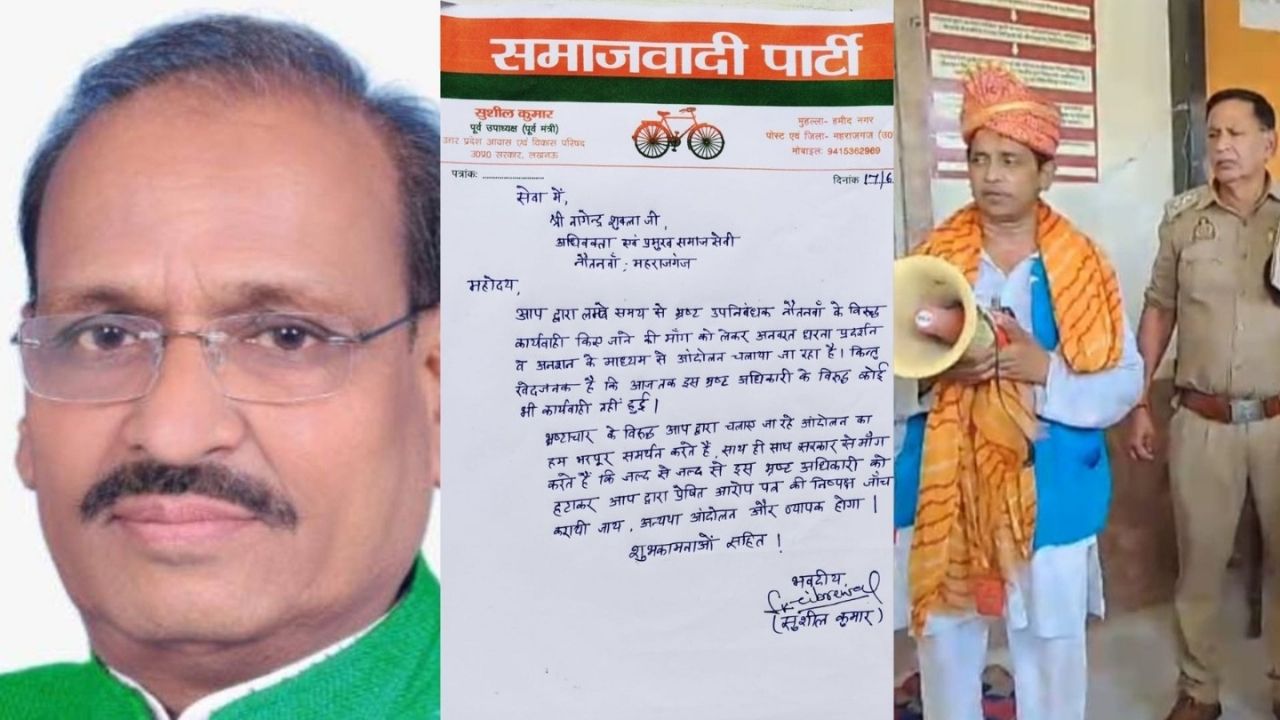 समाजवादी पार्टी
सुशील कुमार
पूर्व उपाध्यक्ष (पूर्व मंत्री)
उत्तर प्रदेश आवास एवं विकास परिषद
उ0प्र0 सरकार, लखनऊ
मुहल्ला- हमीद नगर
पोस्ट एवं जिला- महराजगंज (उ0
मोबाइल: 9415362969
पत्रांक: ....................
दिनांक 17/6
सेवा में,
श्री नागेन्द्र शुक्ला जी,
अधिवक्ता एवं प्रमुख समाज सेवी
नौतनवाँ; महराजगंज
महोदय,
आप द्वारा लम्बे समय से भ्रष्ट उपनिबंधक नौतनवाँ के विरुद्ध
कार्यवाही किए जाने की माँग को लेकर अनवरत धरना प्रदर्शन
व अनशन के माध्यम से आंदोलन चलाया जा रहा है। किन्तु
खेदजनक है कि आजतक इस भ्रष्ट अधिकारी के विरुद्ध कोई
भी कार्यवाही नहीं हुई।
भ्रष्टाचार के विरुद्ध आप द्वारा चलाए जा रहे आंदोलन का
हम भरपूर समर्थन करते हैं, साथ ही साथ सरकार से माँग
करते हैं कि जल्द से जल्द से इस भ्रष्ट अधिकारी को
हटाकर आप द्वारा प्रेषित आरोप पत्र की निष्पक्ष जाँच
करायी जाय, अन्यथा आंदोलन और व्यापक होगा।
शुभकामनाओं सहित!
भवदीय
(सुशील कुमार)